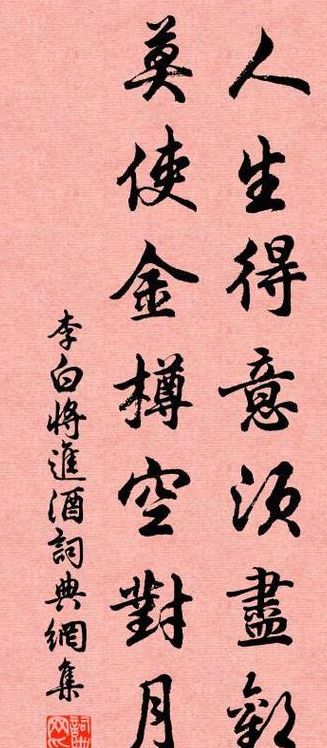 人生得意須盡歡
莫使金樽空對月
李白將進酒詞典網集